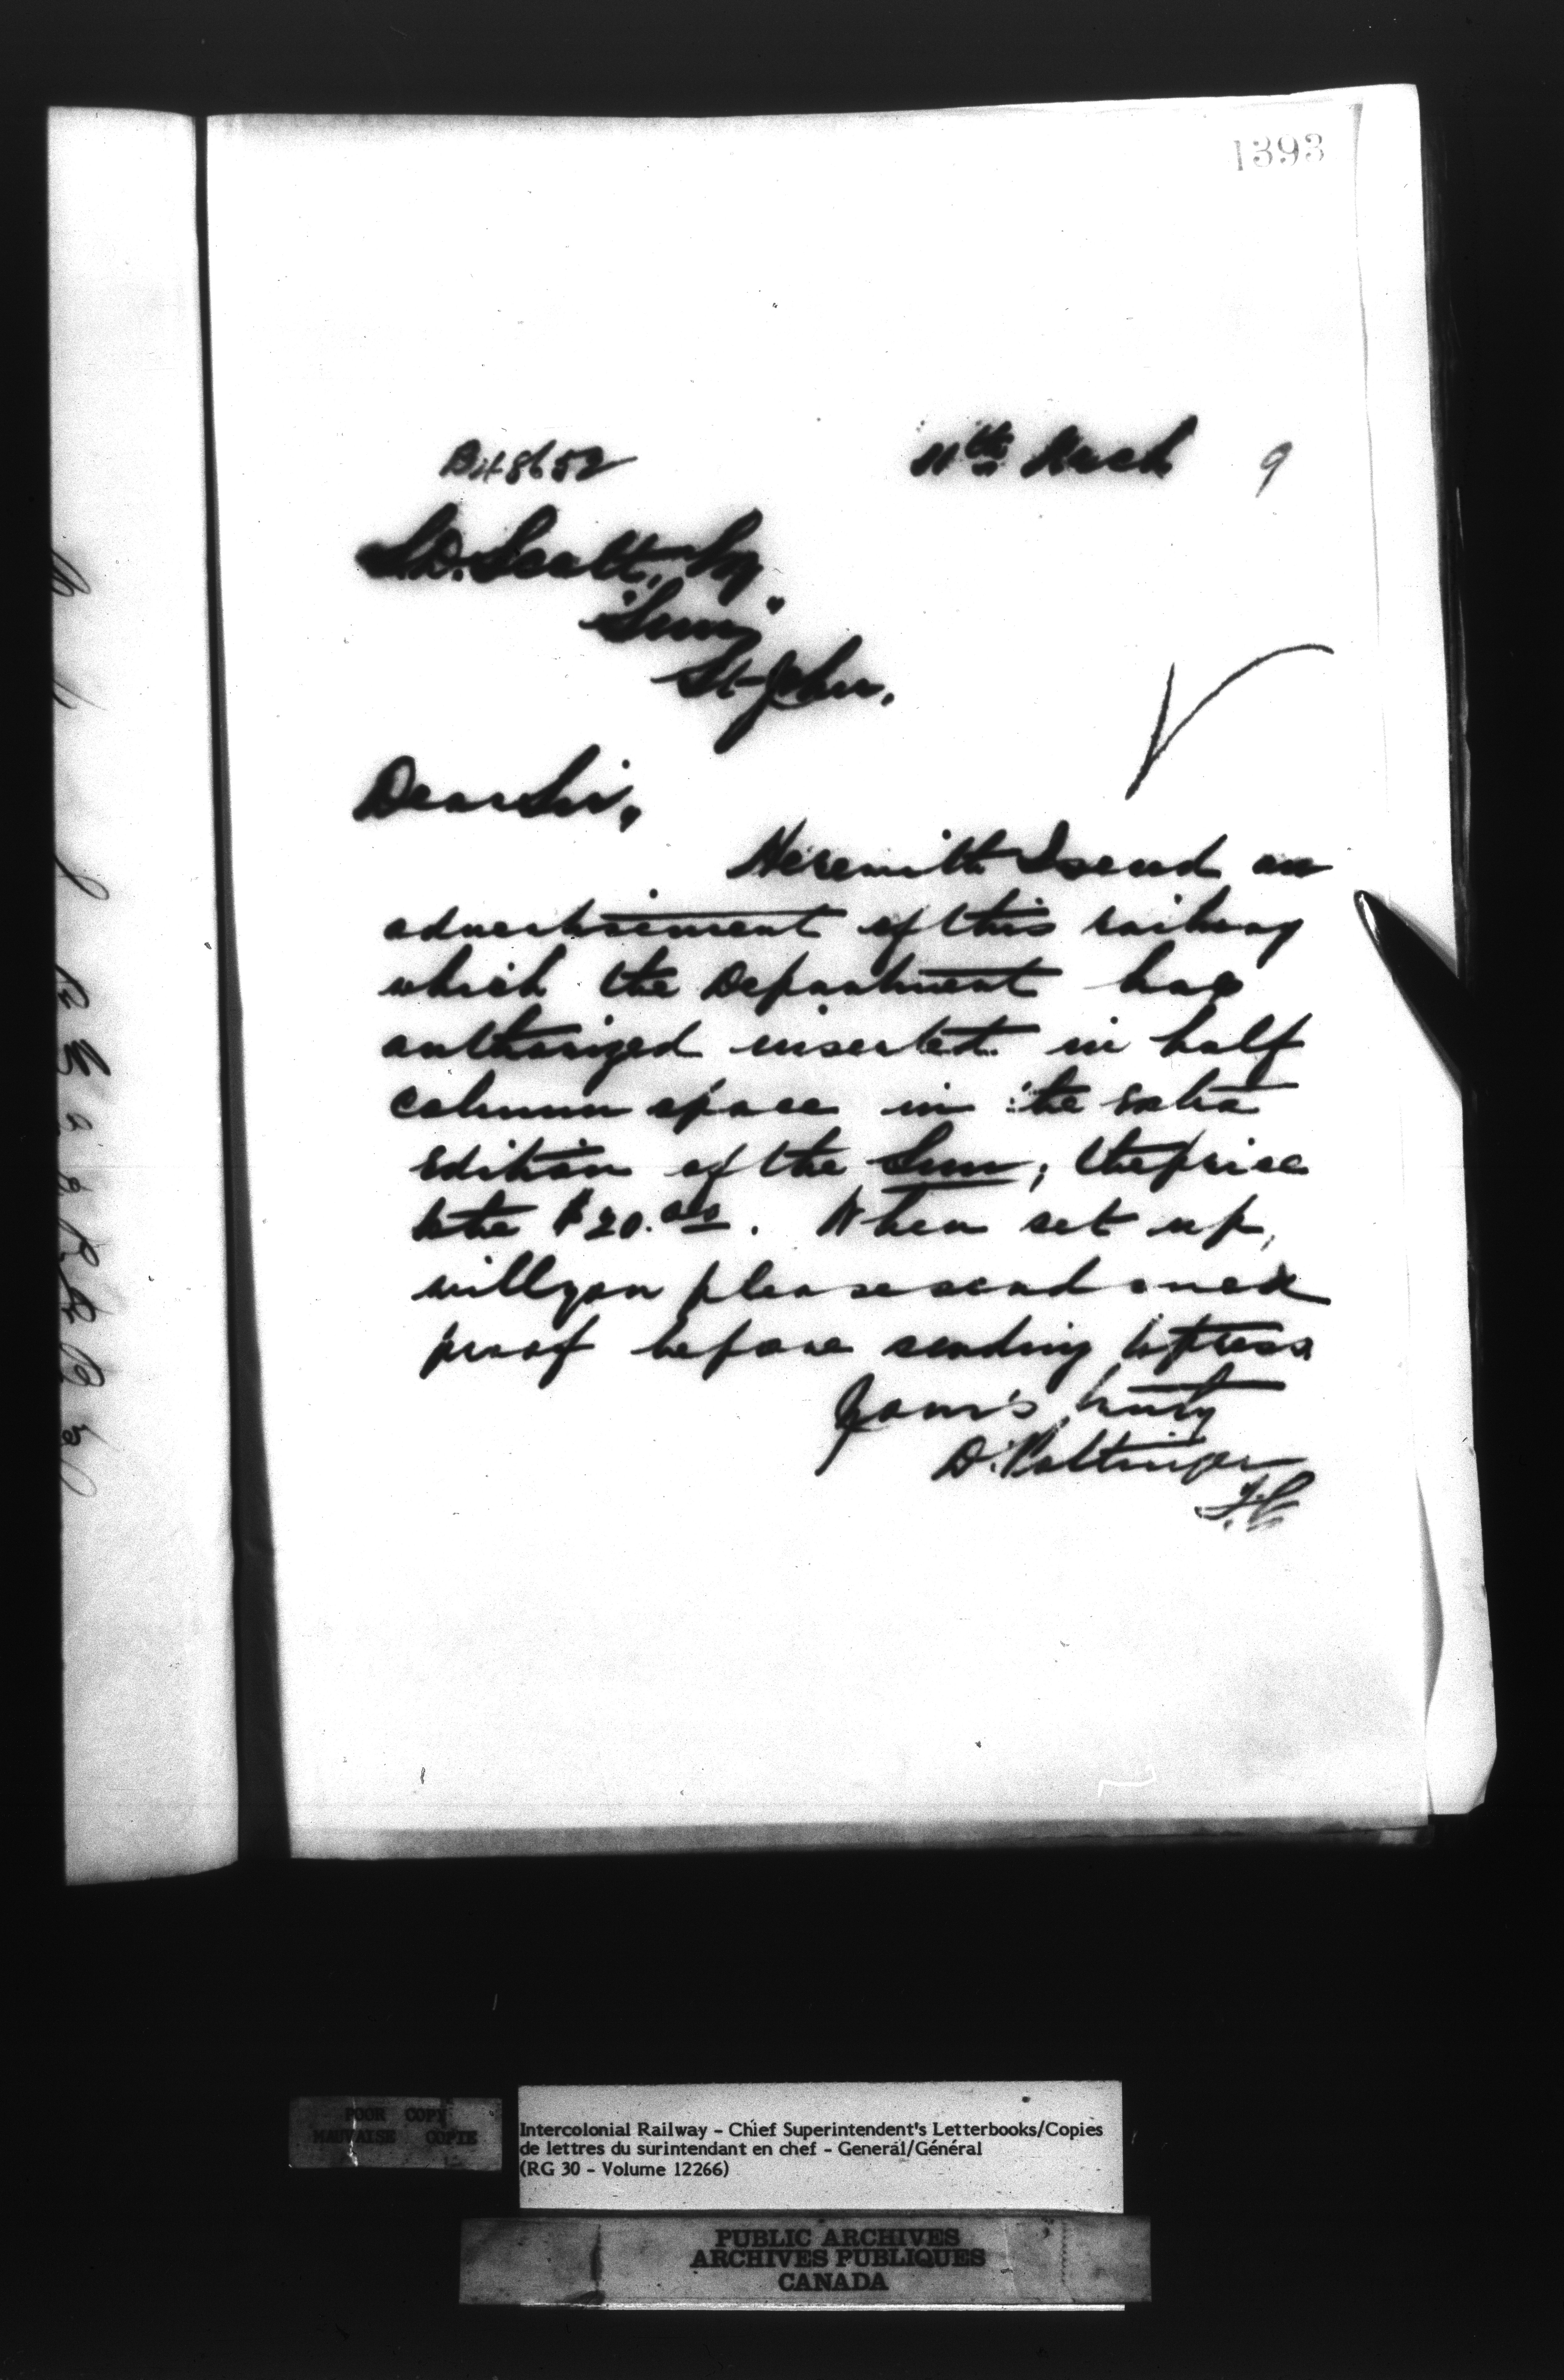 1393
11th March 9
S.D. Scott, Esq.
"Sun,"
St John.
Dear Sir,
Herewith I send an
advertisement of this railway
which the Department has
authorized inserted in half
column space in the extra
edition of the Sun; the price
to be $20.00. When set up,
will you please send me a
proof before sending to press.
Yours truly
D. Pottinger
POOR COPY
MAUVAISE COPIE
Intercolonial Railway - Chief Superintendent's Letterbooks/Copies
de lettres du surintendant en chef - General/Général
(RG 30 - Volume 12266)
PUBLIC ARCHIVES
ARCHIVES PUBLIQUES
CANADA